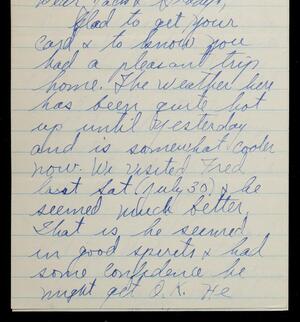 Dear Jack & Gladys,
Glad to get your
card & to know you
had a pleasant trip
home. The weather here
has been quite hot
up until yesterday
and is somewhat cooler
now. We visited Fred
last Sat (July 30) & he
seemed much better,
That is, he seemed
in good spirits & had
some confidence he
might get O.K. He